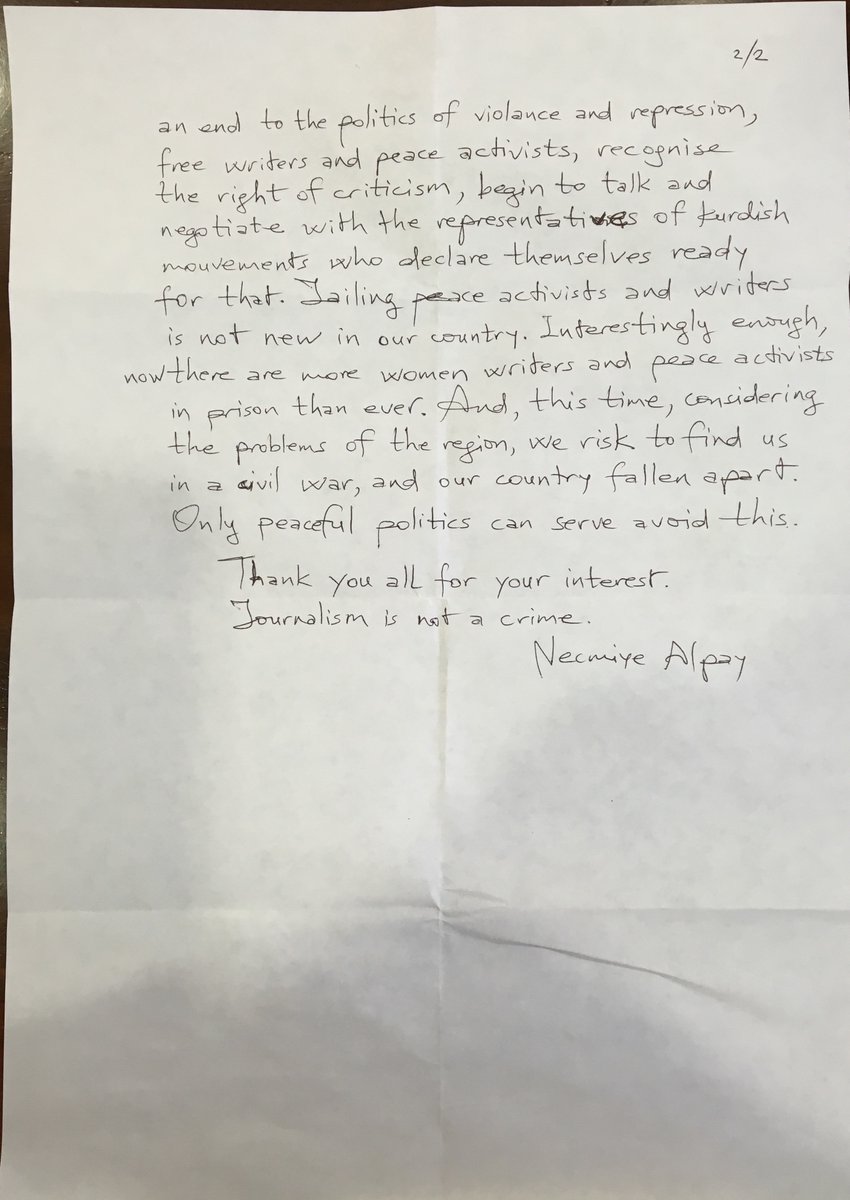 2/2
an end to the politics of violance and repression,
free writers and peace activists, recognise
the right of criticism, begin to talk and
negotiate with the representatives of kurdish
mouvements who declare themselves ready
for that. Jailing peace activists and writers
is not new in our country. Interestingly enough,
now there are more women writers and peace activists
in prison than ever. And, this time, considering
the problems of the region, we risk to find us
in a civil war, and our country fallen apart.
Only peaceful politics can serve avoid this.
Thank you all for your interest.
Journalism is not a crime.
Necmiye Alpay